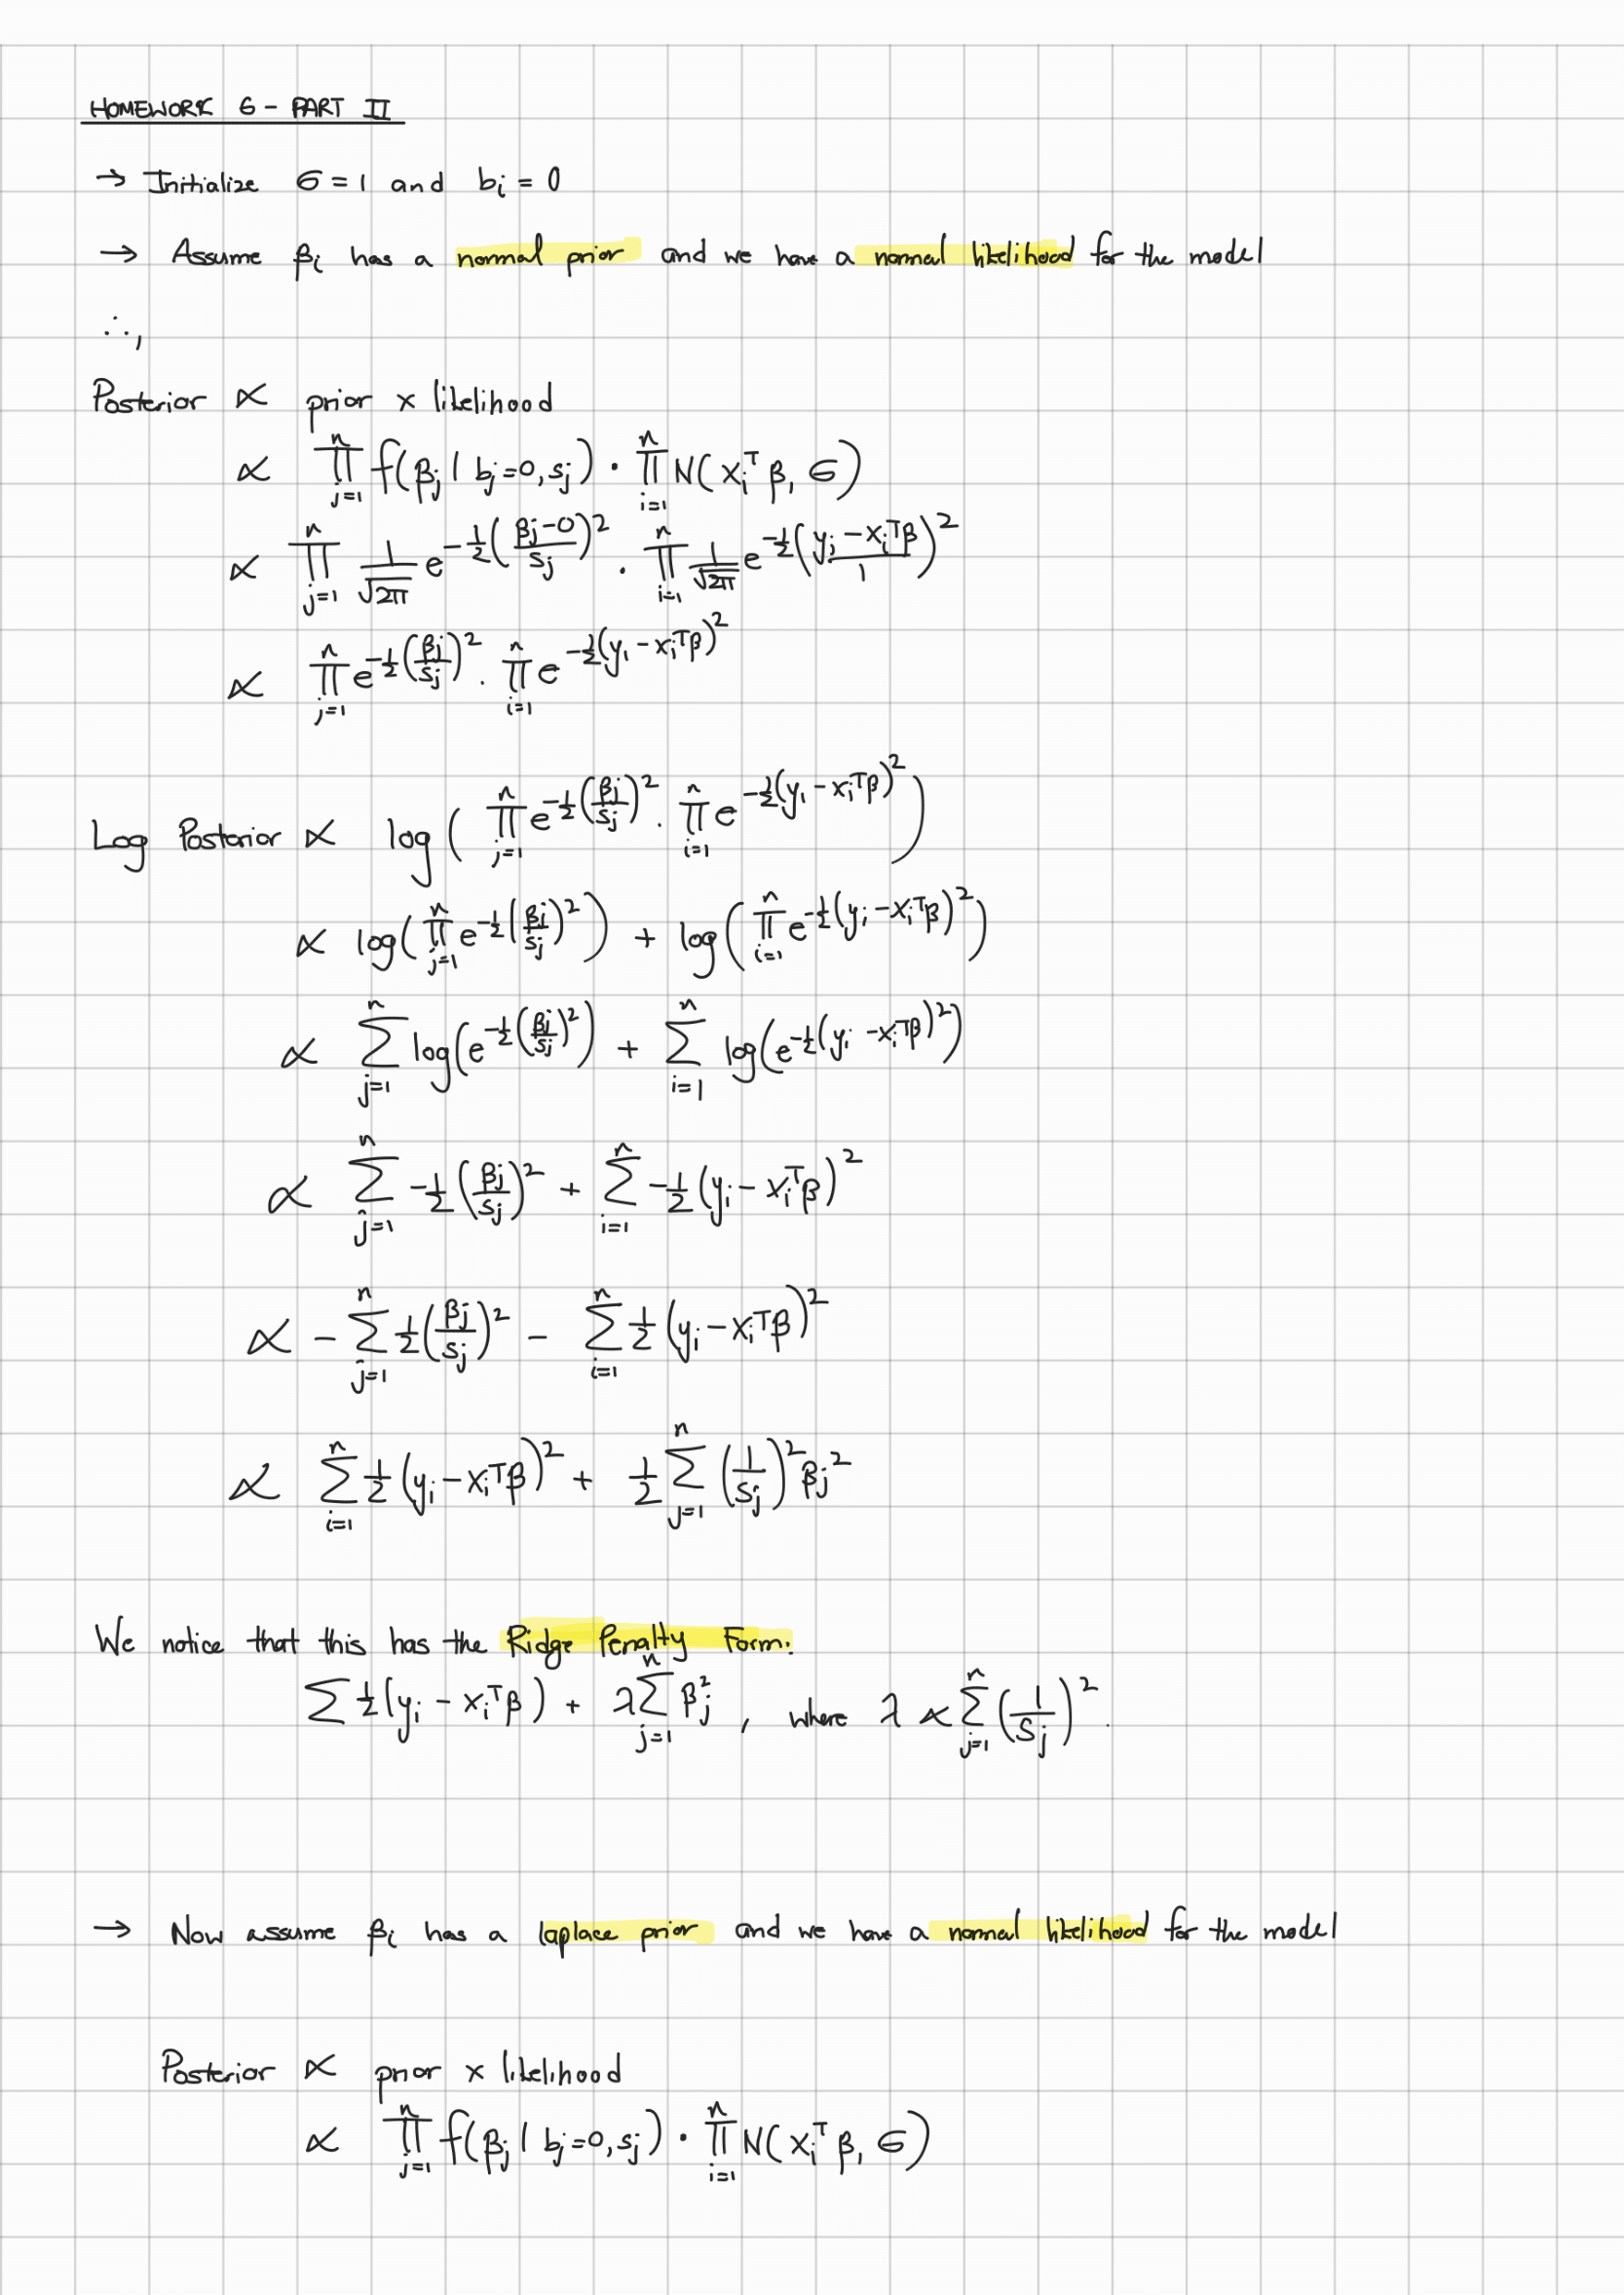 HOMEWORK 6 - PART II
→ Initialize σ = 1 and bᵢ = 0
→ Assume βᵢ has a normal prior and we have a normal likelihood for the model
∴,
Posterior ∝ prior x likelihood
∝ ∏_{j=1}^{n} f(βⱼ | bⱼ=0, sⱼ) · ∏_{i=1}^{n} N(xᵢᵀβ, σ)
∝ ∏_{j=1}^{n} 1/√(2π) e^{-½((βⱼ-0)/sⱼ)²} · ∏_{i=1}^{n} 1/√(2π) e^{-½((yᵢ - xᵢᵀβ)/1)²}
∝ ∏_{j=1}^{n} e^{-½(βⱼ/sⱼ)²} · ∏_{i=1}^{n} e^{-½(yᵢ - xᵢᵀβ)²}
Log Posterior ∝ log( ∏_{j=1}^{n} e^{-½(βⱼ/sⱼ)²} · ∏_{i=1}^{n} e^{-½(yᵢ - xᵢᵀβ)²} )
∝ log( ∏_{j=1}^{n} e^{-½(βⱼ/sⱼ)²} ) + log( ∏_{i=1}^{n} e^{-½(yᵢ - xᵢᵀβ)²} )
∝ ∑_{j=1}^{n} log( e^{-½(βⱼ/sⱼ)²} ) + ∑_{i=1}^{n} log( e^{-½(yᵢ - xᵢᵀβ)²} )
∝ ∑_{j=1}^{n} -½(βⱼ/sⱼ)² + ∑_{i=1}^{n} -½(yᵢ - xᵢᵀβ)²
∝ - ∑_{j=1}^{n} ½(βⱼ/sⱼ)² - ∑_{i=1}^{n} ½(yᵢ - xᵢᵀβ)²
∝ ∑_{i=1}^{n} ½(yᵢ - xᵢᵀβ)² + ½ ∑_{j=1}^{n} (1/sⱼ)² βⱼ²
We notice that this has the Ridge Penalty Form.
∑ ½(yᵢ - xᵢᵀβ) + λ ∑_{j=1}^{n} βⱼ² , where λ ∝ ∑_{j=1}^{n} (1/sⱼ)² .
→ Now assume βᵢ has a laplace prior and we have a normal likelihood for the model
Posterior ∝ prior x likelihood
∝ ∏_{j=1}^{n} f(βⱼ | bⱼ=0, sⱼ) · ∏_{i=1}^{n} N(xᵢᵀβ, σ)